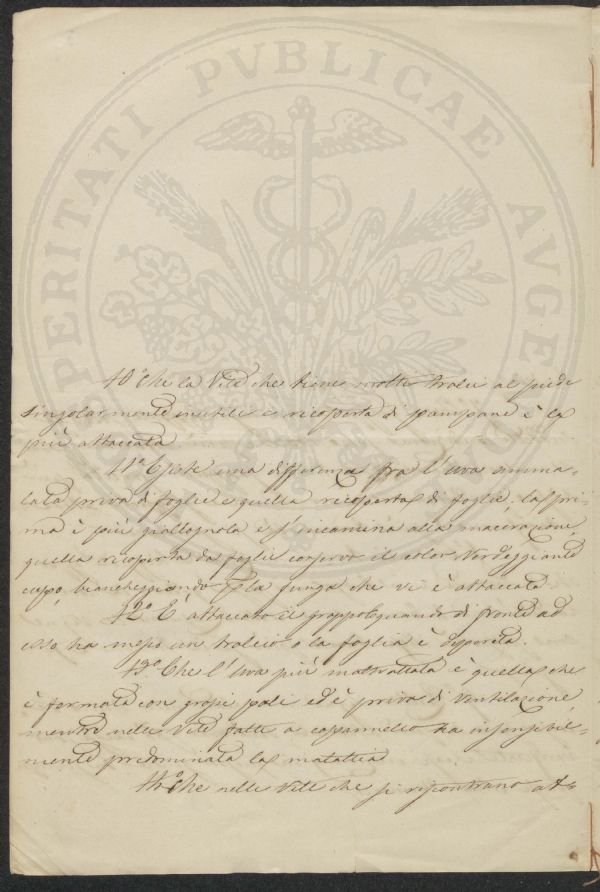 PERITATI PVBLICAE AVGE
10° Che la Vite che tiene molti tralci al piede
singolarmente inutili e ricoperta di pampane è la
più attaccata
11° Esiste una differenza fra l'uva amma-
lata priva di foglie e quella ricoperta di foglie; la pri-
ma è più giallognola e s'incamina alla macerazione,
quella ricoperta da foglie conserva il color verdeggiante
cupo, biancheggiando la funga che vi è attaccata
12° E' attaccato il grappolo quando di fronte ad
esso ha messo un tralcio o la foglia è
13° Che l'Uva più maltrattata è quella che
è formata con grossi pali ed è priva di ventilazione,
mentre nelle Vite fatte a capannello ha insensibil-
mente predominata la malattia
14° Che nelle Vite che si riscontrano at-